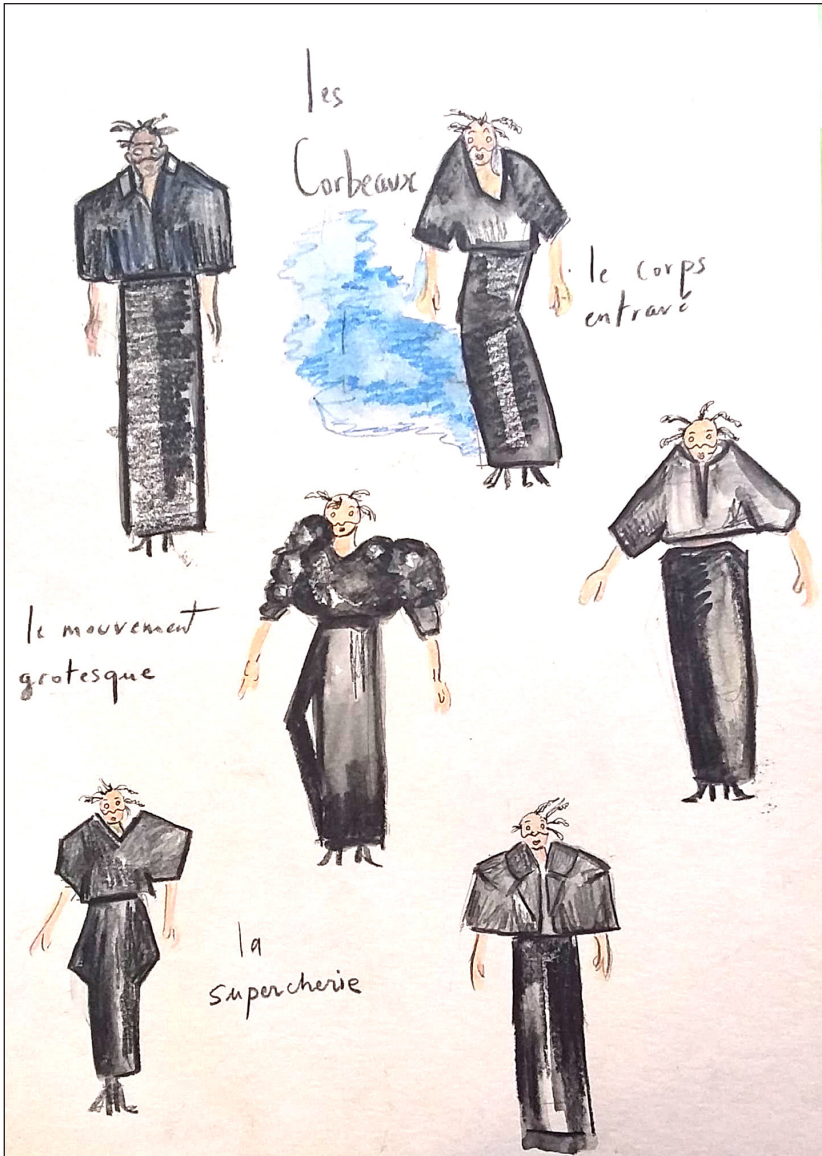 les
Corbeaux
le corps
entravé
le mouvement
grotesque
la
supercherie